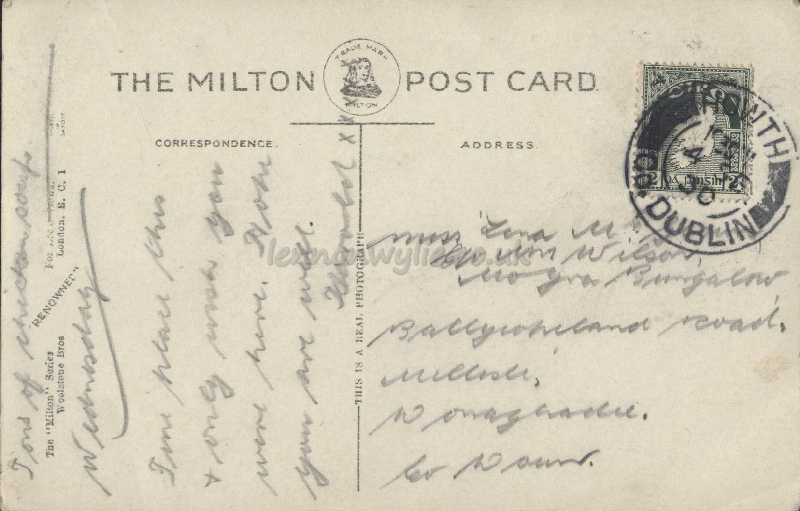 THE MILTON POST CARD
TRADE MARK
MILTON
CORRESPONDENCE.
ADDRESS.
HOWTH
CO. DUBLIN
4
30
Wednesday
Fine place this
& only wish you
were here. Hope
you are well.
x x x
Tons of chicken soup.
Miss Lena M
Wilson
Bungalow
Road,
Millisle,
Donaghadee.
Co Down.
THIS IS A REAL PHOTOGRAPH
The "Milton" Series
Woolstone Bros
"RENOWNED"
London, E. C. 1